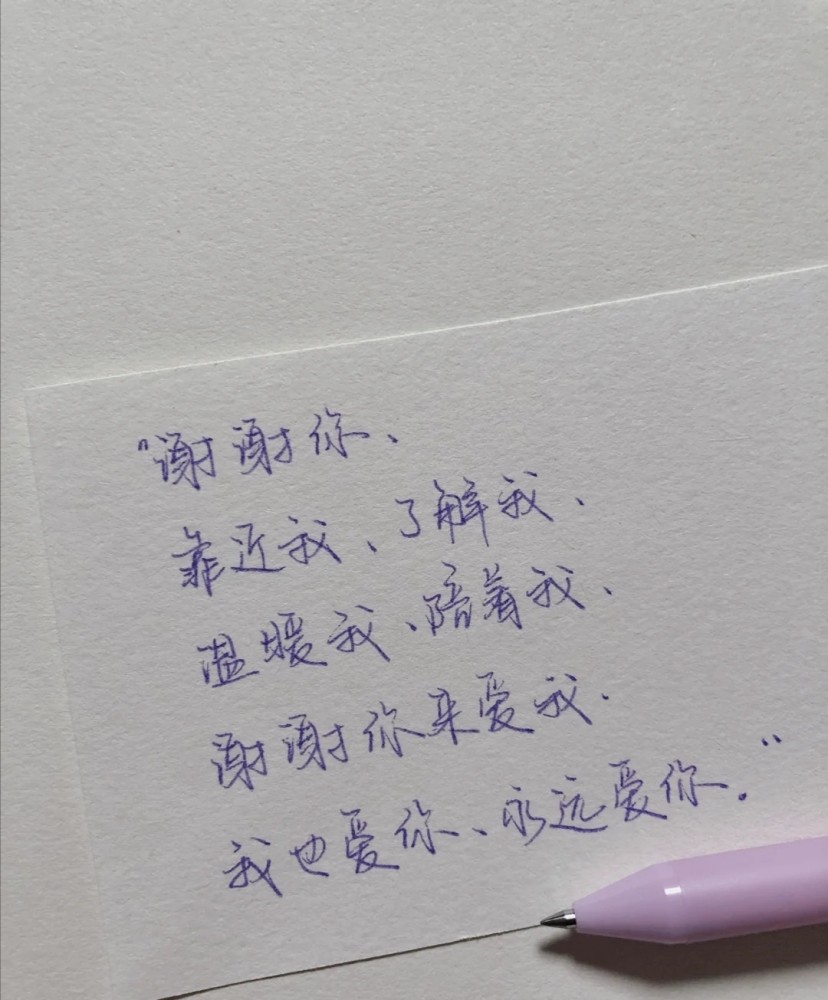 "谢谢你、
靠近我、了解我、
温暖我、陪着我、
谢谢你来爱我.
我也爱你、永远爱你。"